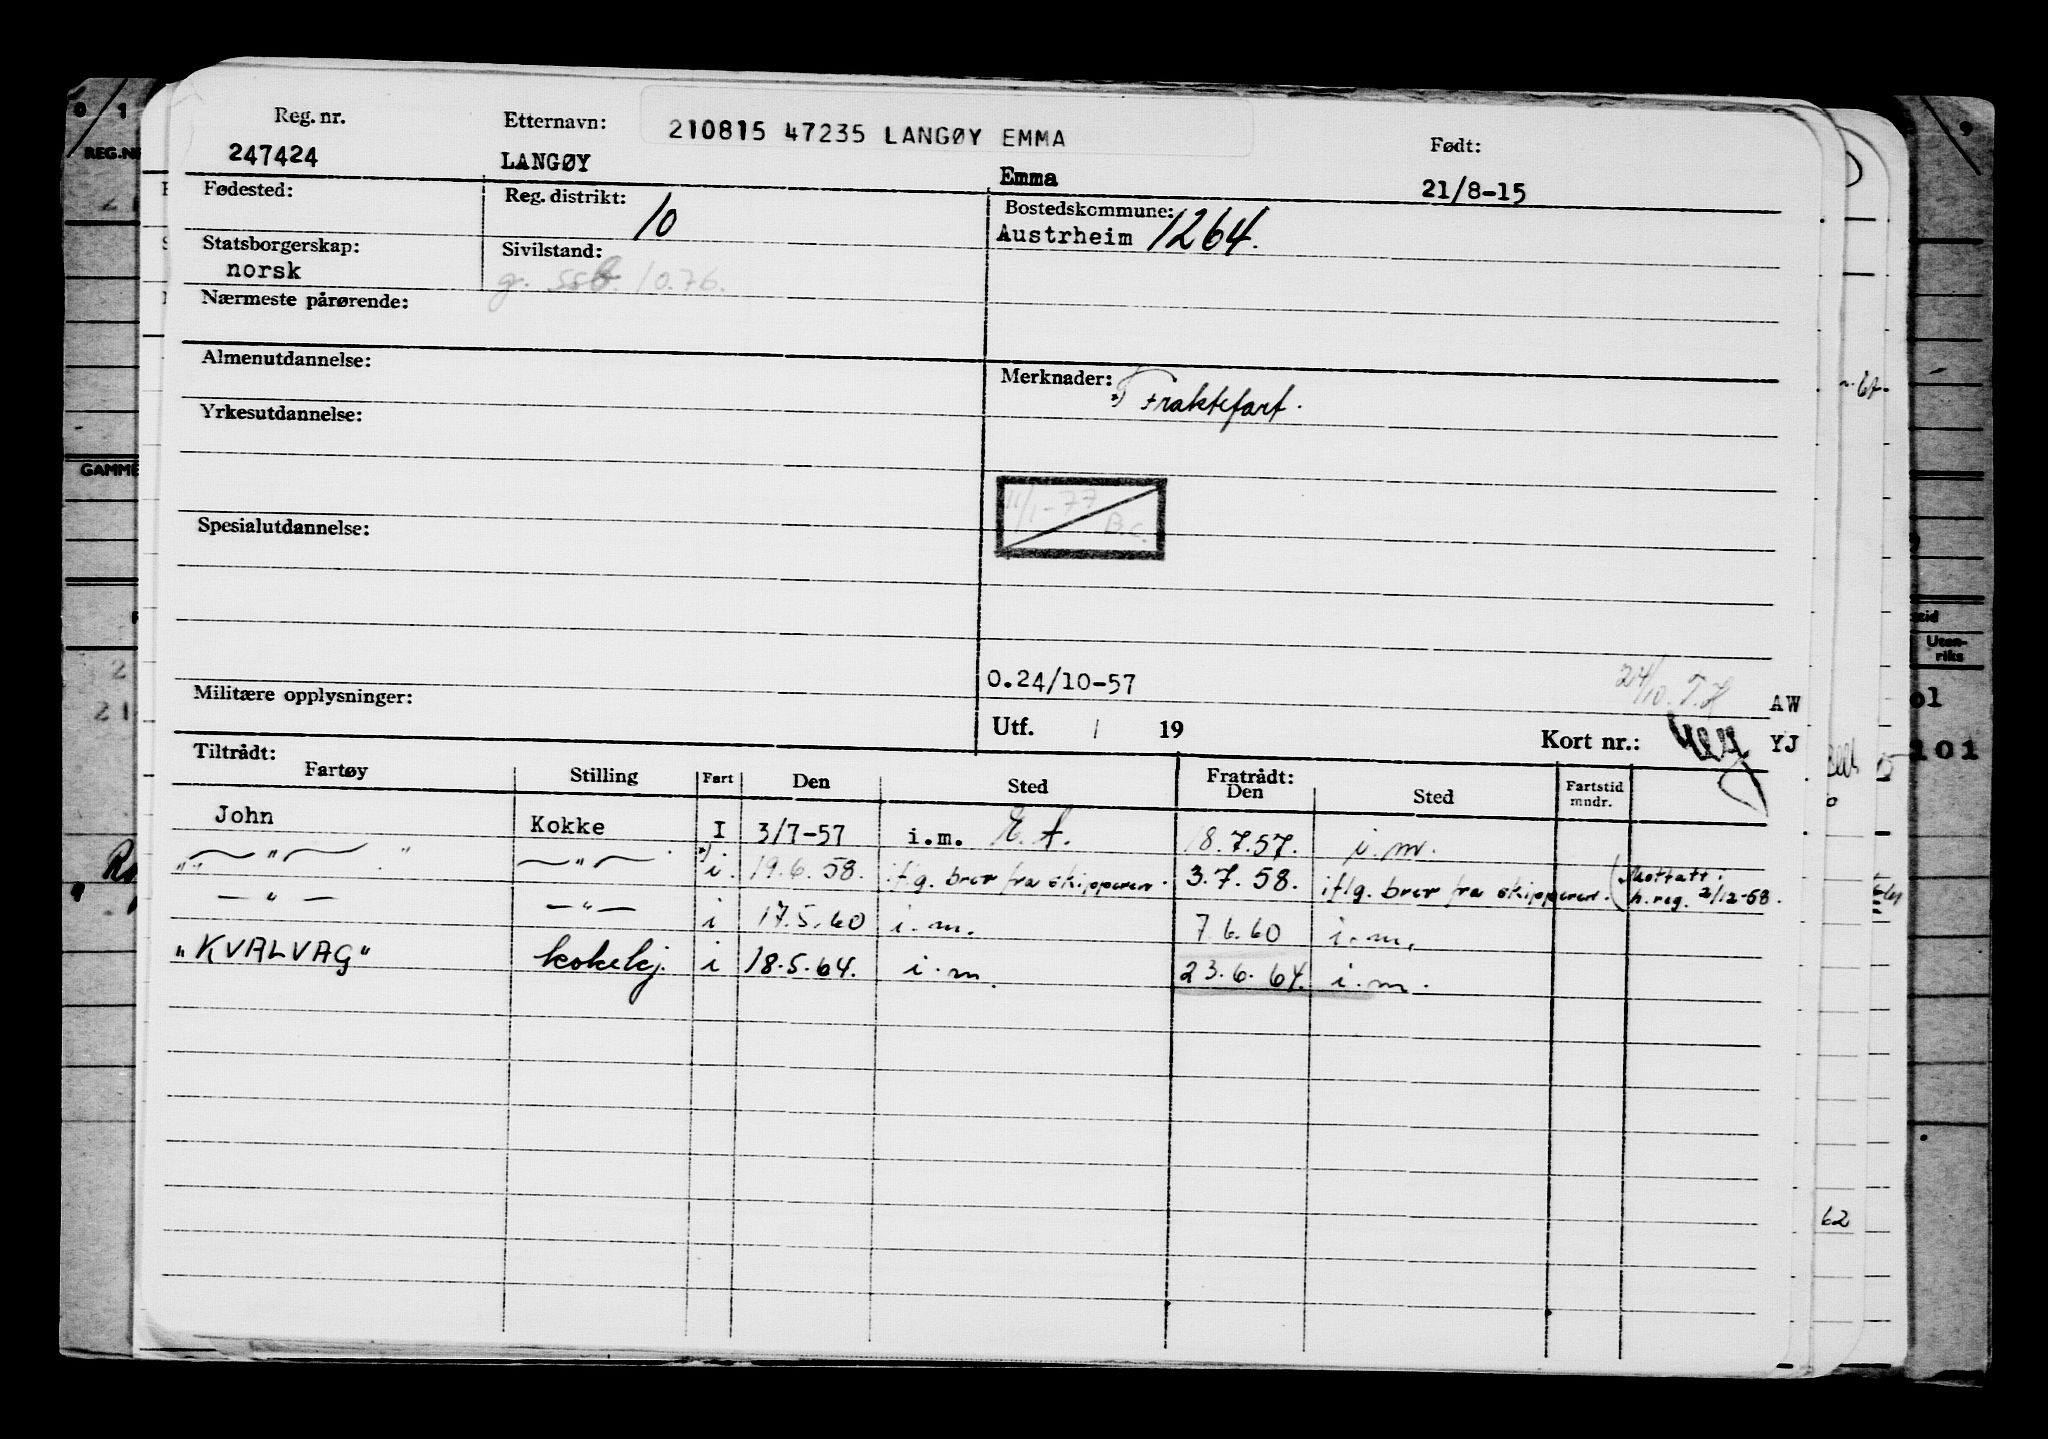 Reg. nr.
Etternavn:
210815 47235 LANGØY EMMA
Født:
247424
LANGØY
Emma
21/8-15
Fødested:
Reg. distrikt: 10
Bostedskommune:
Austrheim 1264.
Statsborgerskap:
norsk
Sivilstand:
g. ssb. 10.76.
Nærmeste pårørende:
Almenutdannelse:
Merknader:
*) Fraktefart.
Yrkesutdannelse:
11/1-77
B.C.
Spesialutdannelse:
0.24/10-57
24/10.
AW
Militære opplysninger:
Utf. / 19
Kort nr.:
YJ
Tiltrådt:
Fratrådt:
Fartøy Stilling Fart Den Sted Den Sted Fartstid mndr.
John Kokke I 3/7-57 i.m. 18.7.57. i.m.
" — " — " — " — *) i. 19.6.58. iflg. brev fra skipperen. 3.7.58. iflg. brev fra skipperen. (Mottatt i
h.reg. 2/12-58.
— " — — " — i 17.5.60 i.m. 7.6.60 i.m.
"KVALVAG" kokekj. i 18.5.64. i.m. 23.6.64. i.m.
REG.NR
GAMME
Uten-
riks
101
62